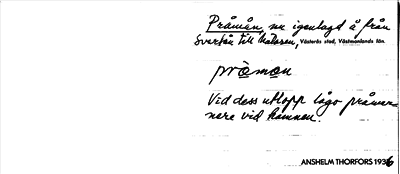 Pråmån, nu igenlagd å från
Svartån till Mälaren, Västerås stad, Västmanlands län.
prò̀mɑn
Vid dess utlopp lågo pråmar-
nere vid hamnen.
ANSHELM THORFORS 1936